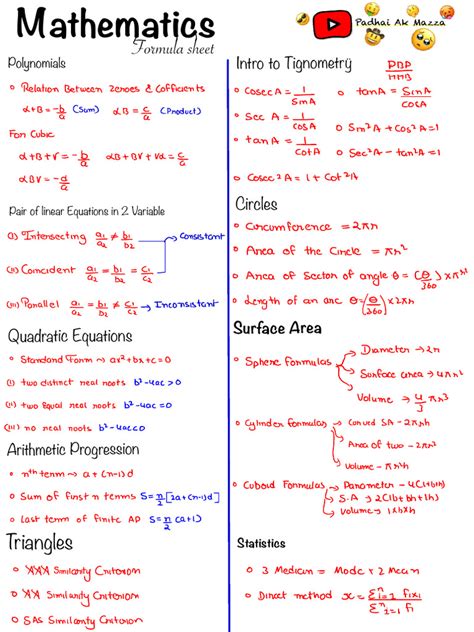 Mathematics
Formula sheet
Padhai Ak Mazza
Polynomials
○ Relation Between Zeroes & Cofficents
α+β = -b/a (Sum) αβ = c/a (Product)
For Cubic
α+β+γ = -b/a αβ+βγ+γα = c/a
αβγ = -d/a
Pair of linear Equations in 2 Variable
(i) Intersecting a1/a2 ≠ b1/b2 → Consistant
(ii) Coincident a1/a2 = b1/b2 = c1/c2
(iii) Parallel a1/a2 = b1/b2 ≠ c1/c2 → Inconsistant
Quadratic Equations
○ Standard Form ~ ax²+bx+c=0
(i) two distinct real roots b²-4ac>0
(ii) two Equal real roots b²-4ac=0
(iii) no real roots b²-4ac<0
Arithmetic Progression
○ nth term → a+(n-1)d
○ Sum of first n terms S=n/2[2a+(n-1)d]
○ Last term of finite AP S=n/2(a+l)
Triangles
○ AAA Similarity Criterion
○ Similarity Criterion
○ SAS Similarity Criterion
Intro to Tignometry
PBP
HHB
○ Cosec A = 1/SinA ○ tanA = SinA/CosA
○ Sec A = 1/CosA ○ Sin²A+Cos²A=1
○ tan A = 1/CotA ○ Sec²A-tan²A=1
○ Cosec²A = 1+Cot²A
Circles
○ Circumference = 2πr
○ Area of the Circle = πr²
○ Area of Sector of angle θ = (θ/360)×πr²
○ Length of an arc θ = (θ/360)×2πr
Surface Area
○ Sphere formulas
→ Diameter → 2r
→ Surface area → 4πr²
→ Volume → 4/3πr³
○ Cylinder formulas
→ Curved SA - 2πrh
→ Area of two - 2πr²
→ Volume - πr²h
○ Cuboid Formulas
→ Parameter - 4(l+b+h)
→ S.A → 2(lb+bh+lh)
→ Volume → l×b×h
Statistics
○ 3 Median = Mode + 2 Mean
○ Direct method x = Σⁿi=1 fixi / Σⁿi=1 fi